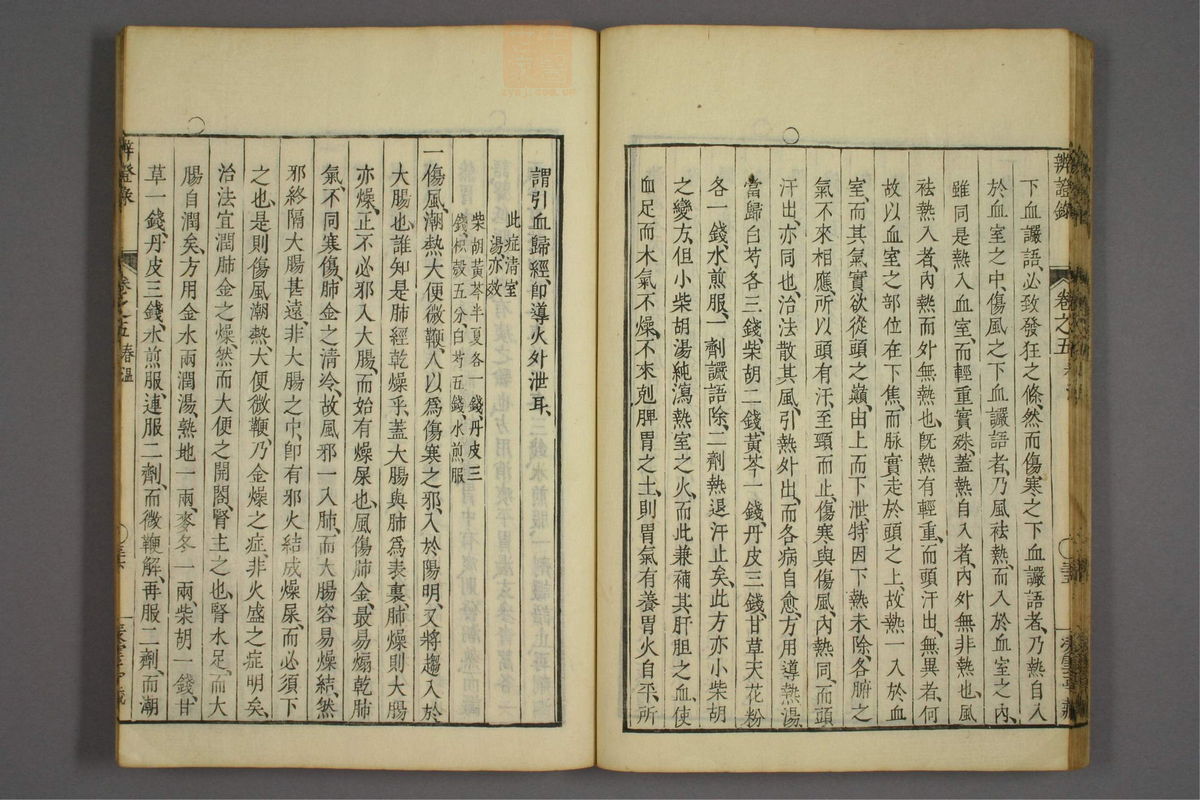 辨證錄
卷之五
下血讝語必致發狂之條然而傷寒之下血讝語者乃熱自入
於血室之中傷風之下血讝語者乃風祛熱而入於血室之內
雖同是熱入血室而輕重實殊蓋熱自入者內外無非熱也風
祛熱入者內熱而外無熱也旣熱有輕重而頭汗出無異者何
故以血室之部位在下焦而脉實走於頭之上故熱一入於血
室而其氣實欲從頭之巔由上而下泄特因下熱未除各腑之
氣不來相應所以頭有汗至頸而止傷寒與傷風內熱同而頭
汗出亦同也治法散其風引熱外出而各病自愈方用導熱湯
當歸白芍各三錢柴胡二錢黃芩一錢丹皮三錢甘草天花粉
各一錢水煎服一劑讝語除二劑熱退汗止矣此方亦小柴胡
之變方但小柴胡湯純瀉熱室之火而此兼補其肝胆之血使
血足而木氣不燥不來剋脾胃之土則胃氣有養胃火自平所
謂引血歸經卽導火外泄耳
此症清室
湯亦效
柴胡黃芩半夏各一錢丹皮三
錢枳殼五分白芍五錢水煎服
一傷風潮熱大便微鞕人以爲傷寒之邪入於陽明又將趨入於
大腸也誰知是肺經乾燥乎蓋大腸與肺爲表裏肺燥則大腸
亦燥正不必邪入大腸而始有燥屎也風傷肺金最易煽乾肺
氣不同寒傷肺金之清冷故風邪一入肺而大腸容易燥結然
邪終隔大腸甚遠非大腸之中卽有邪火結成燥屎而必須下
之也是則傷風潮熱大便微鞕乃金燥之症非火盛之症明矣
治法宜潤肺金之燥然而大便之開闔腎主之也腎水足而大
腸自潤矣方用金水兩潤湯熟地一兩麥冬一兩柴胡一錢甘
草一錢丹皮三錢水煎服連服二劑而微鞕解再服二劑而潮
辨證錄
卷之五
春温